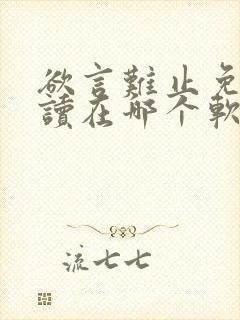 欲言難止免
讀在哪个軟
流七七